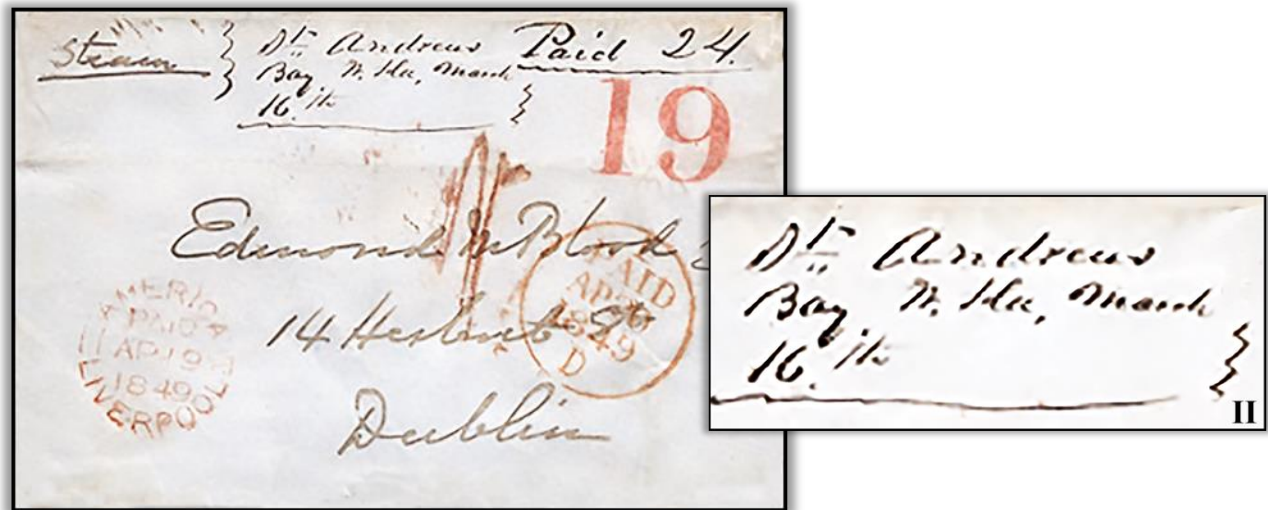 Steam } St. Andrews Paid 24.
Bay W. Fla, March
16.th }
19
Edmond Blood
14 Herbert St
Dublin
AMERICA
PAID
AP 19
1849
LIVERPOOL
PAID
AP
1849
D
St. Andrews
Bay W. Fla, March
16.th }
II